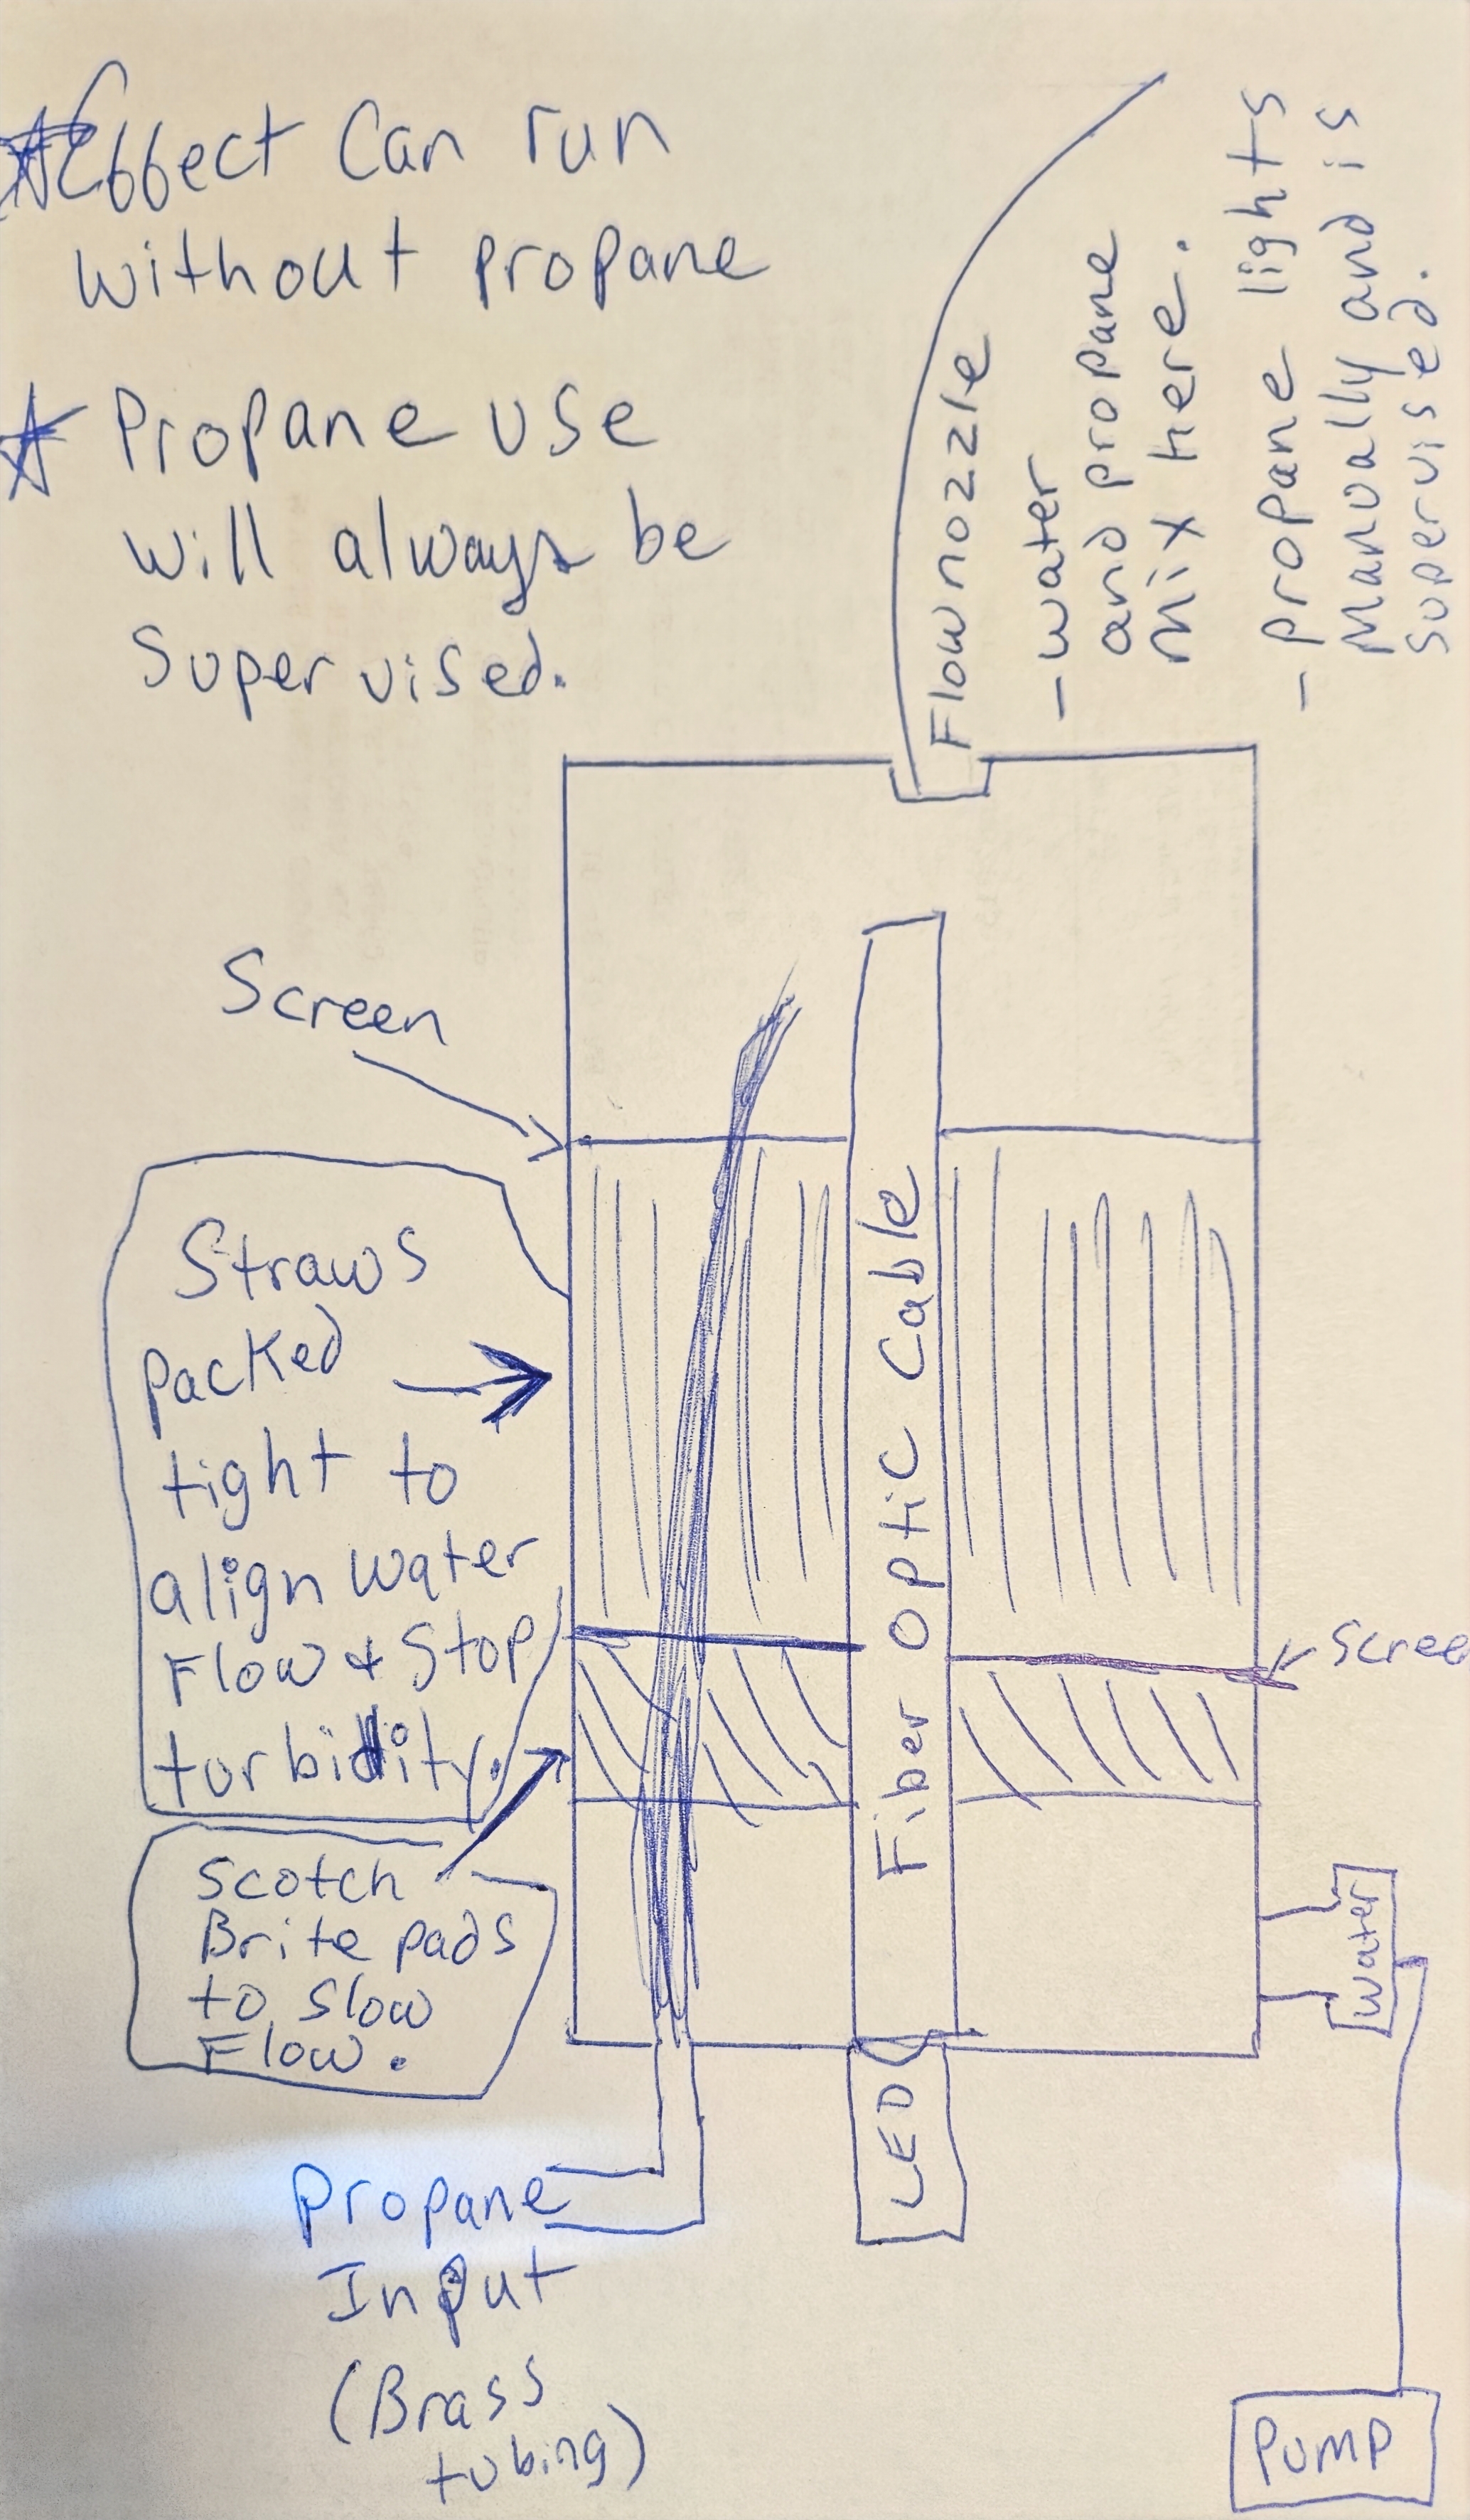 Effect Can run
without propane
Propane use
will always be
Supervised.
Flow nozzle
- water
and propane
Mix here.
- propane lights
Manually and is
supervised.
Screen
Straws
Packed
tight to
align water
Flow & Stop
turbidity.
Scree
Scotch
Brite pads
to slow
Flow.
Fiber Optic Cable
Water
LED
Propane
Input
(Brass
tubing)
PUMP